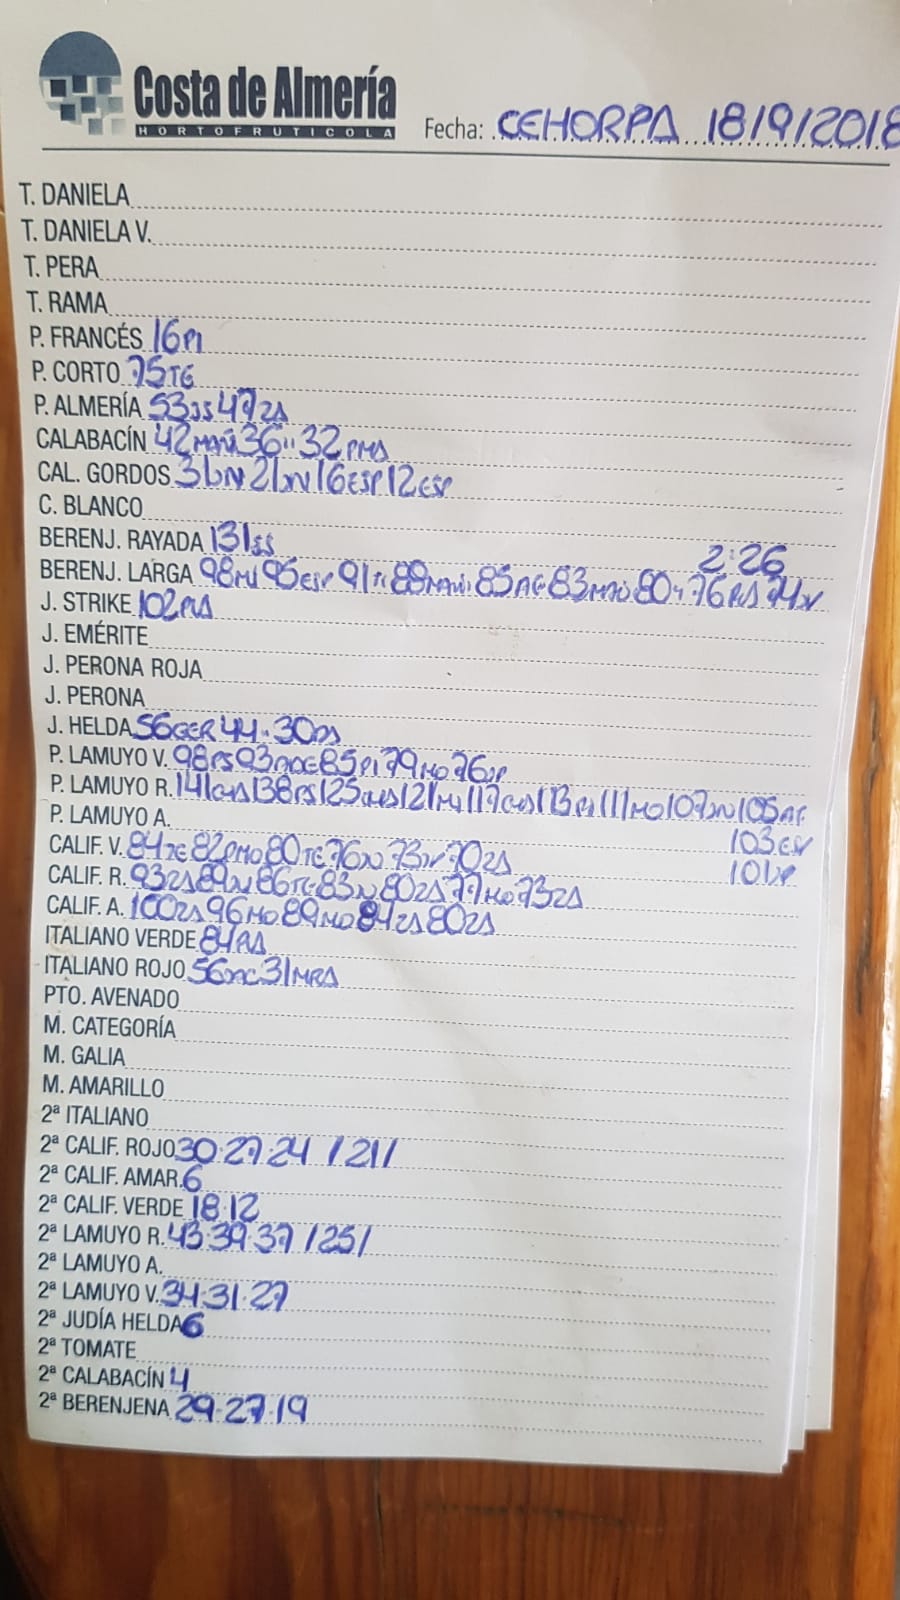 Costa de Almería
HORTOFRUTICOLA
Fecha: CEHORPA 18/9/2018
T. DANIELA
T. DANIELA V.
T. PERA
T. RAMA
P. FRANCÉS 16PI
P. CORTO 75TE
P. ALMERÍA 53JS 47ZA
CALABACÍN 42MAÑ 36" 32PMA
CAL. GORDOS 31 21 16ESP 12ESP
C. BLANCO
BERENJ. RAYADA 131SS
2:26
BERENJ. LARGA 98MU 95ESP 91 88MAÑ 85AF 83 80" 76 74
J. STRIKE 102
J. EMÉRITE
J. PERONA ROJA
J. PERONA
J. HELDA 56GER 44 30
P. LAMUYO V. 98PS 93 85PI 79MO 76
P. LAMUYO R. 141 138PS 125 121 117 113 111MO 107 105AF
103
101
P. LAMUYO A.
CALIF. V. 84TE 82PMO 80TE 76 73 70ZA
CALIF. R. 93ZA 89 86TE 83 80ZA 77MO 73ZA
CALIF. A. 100ZA 96MO 89MO 84ZA 80ZA
ITALIANO VERDE 84
ITALIANO ROJO 56 31MRA
PTO. AVENADO
M. CATEGORÍA
M. GALIA
M. AMARILLO
2ª ITALIANO
2ª CALIF. ROJO 30·27·24 /21/
2ª CALIF. AMAR. 6
2ª CALIF. VERDE 18·12
2ª LAMUYO R. 43·39·37 /25/
2ª LAMUYO A.
2ª LAMUYO V. 34·31·27
2ª JUDÍA HELDA 6
2ª TOMATE
2ª CALABACÍN 4
2ª BERENJENA 29·27·19